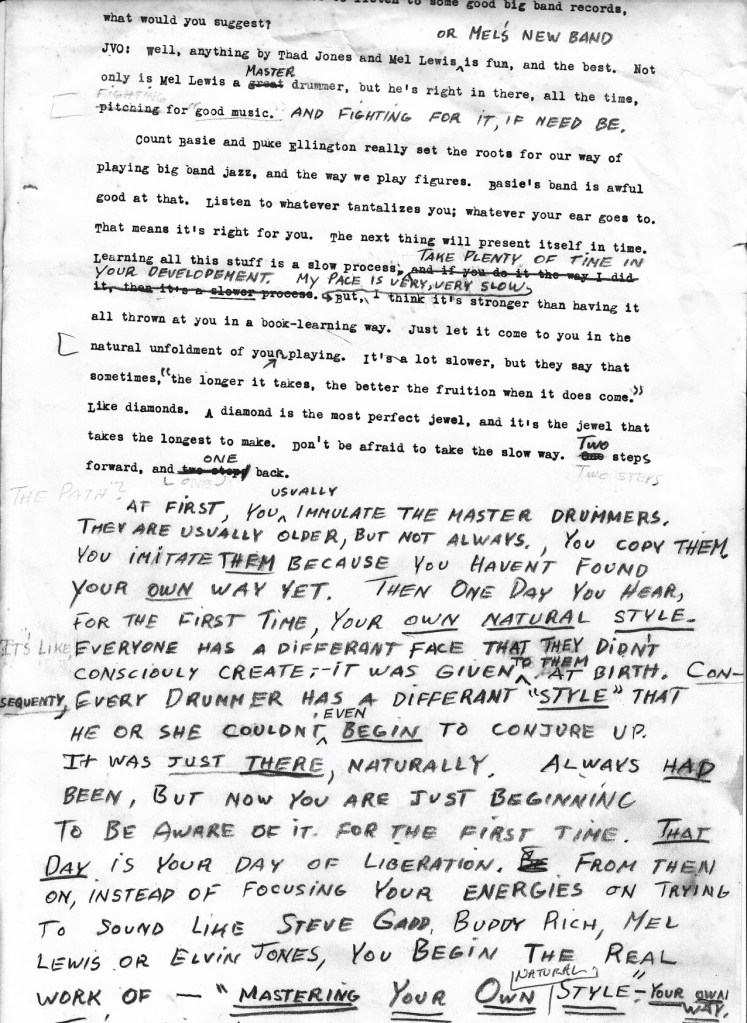 to listen to some good big band records,
what would you suggest?
OR MEL'S NEW BAND
JVO: Well, anything by Thad Jones and Mel Lewis ^ is fun, and the best. Not
MASTER
only is Mel Lewis a great drummer, but he's right in there, all the time,
FIGHTING
pitching for "good music. AND FIGHTING FOR IT, IF NEED BE.
Count Basie and Duke Ellington really set the roots for our way of
playing big band jazz, and the way we play figures. Basie's band is awful
good at that. Listen to whatever tantalizes you; whatever your ear goes to.
That means it's right for you. The next thing will present itself in time.
TAKE PLENTY OF TIME IN
Learning all this stuff is a slow process, and if you do it the way I did
YOUR DEVELOPEMENT. MY PACE IS VERY, VERY SLOW,
it, then it's a slower process. But, I think it's stronger than having it
all thrown at you in a book-learning way. Just let it come to you in the
natural unfoldment of your playing. It's a lot slower, but they say that
sometimes, "the longer it takes, the better the fruition when it does come."
Like diamonds. A diamond is the most perfect jewel, and it's the jewel that
takes the longest to make. Don't be afraid to take the slow way. TWO One steps
ONE
forward, and two steps back.
TWO STEPS
THE PATH?
USUALLY
AT FIRST, YOU ^ IMMULATE THE MASTER DRUMMERS.
THEY ARE USUALLY OLDER, BUT NOT ALWAYS., YOU COPY THEM.
YOU IMITATE THEM BECAUSE YOU HAVENT FOUND
YOUR OWN WAY YET. THEN ONE DAY YOU HEAR,
FOR THE FIRST TIME, YOUR OWN NATURAL STYLE.
IT'S LIKE EVERYONE HAS A DIFFERANT FACE THAT THEY DIDN'T
CONSCIOULY CREATE;-IT WAS GIVEN ^ TO THEM AT BIRTH. CON-
SEQUENTY, EVERY DRUMMER HAS A DIFFERANT "STYLE" THAT
HE OR SHE COULDNT ^ EVEN BEGIN TO CONJURE UP.
IT WAS JUST THERE, NATURALLY. ALWAYS HAD
BEEN, BUT NOW YOU ARE JUST BEGINNING
TO BE AWARE OF IT. FOR THE FIRST TIME. THAT
DAY IS YOUR DAY OF LIBERATION. FROM THEN
ON, INSTEAD OF FOCUSING YOUR ENERGIES ON TRYING
TO SOUND LIKE STEVE GADD, BUDDY RICH, MEL
LEWIS OR ELVIN JONES, YOU BEGIN THE REAL
NATURAL
WORK OF — "MASTERING YOUR OWN STYLE"-YOUR OWN
WAY.